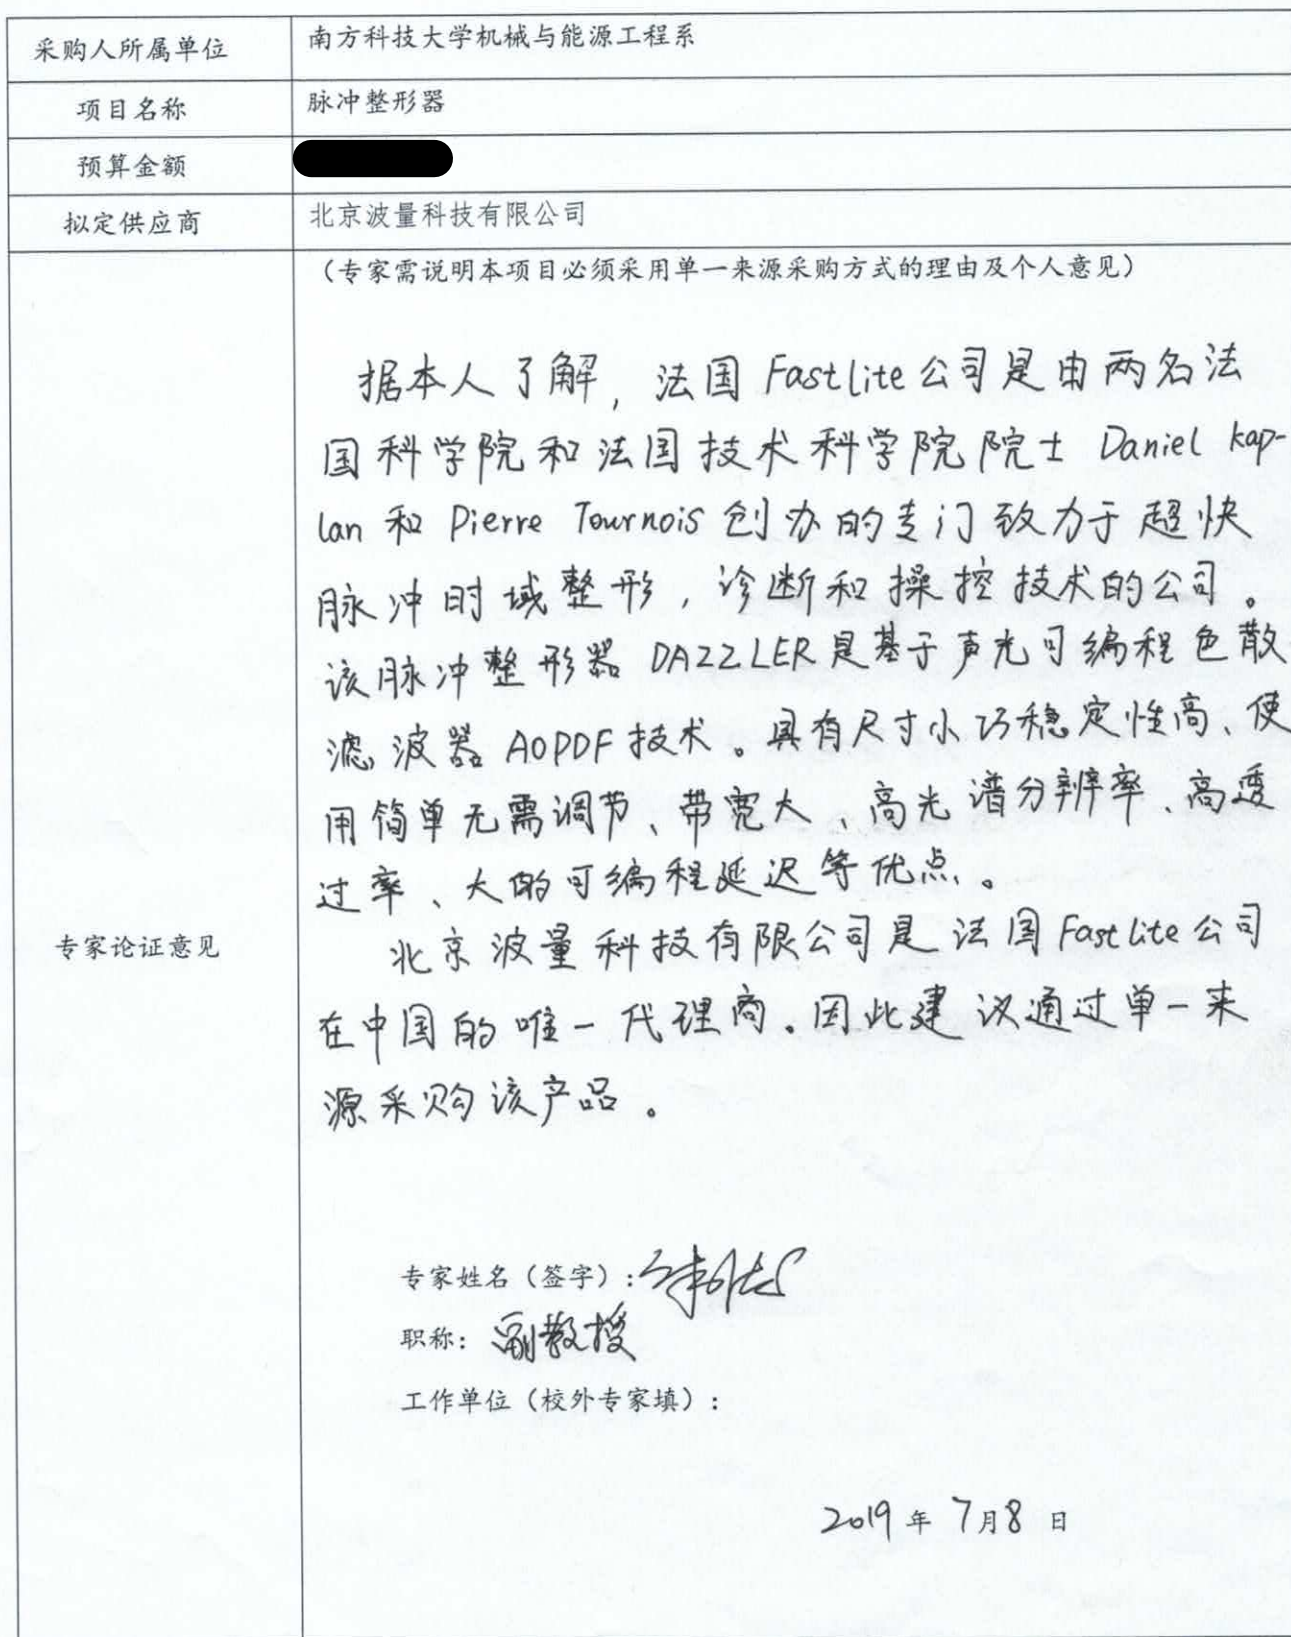 采购人所属单位
南方科技大学机械与能源工程系
项目名称
脉冲整形器
预算金额
拟定供应商
北京波量科技有限公司
专家论证意见
（专家需说明本项目必须采用单一来源采购方式的理由及个人意见）
据本人了解，法国Fastlite公司是由两名法
国科学院和法国技术科学院院士 Daniel kap-
lan 和 Pierre Tournois 创办的专门致力于超快
脉冲时域整形，诊断和操控技术的公司。
该脉冲整形器 DAZZLER是基于声光可编程色散
滤波器 AOPDF技术。具有尺寸小巧稳定性高、使
用简单无需调节、带宽大、高光谱分辨率、高透
过率、大的可编程延迟等优点。
北京波量科技有限公司是法国Fastlite公司
在中国的唯一代理商。因此建议通过单一来
源采购该产品。
专家姓名（签字）：
职称：副教授
工作单位（校外专家填）：
2019年7月8日